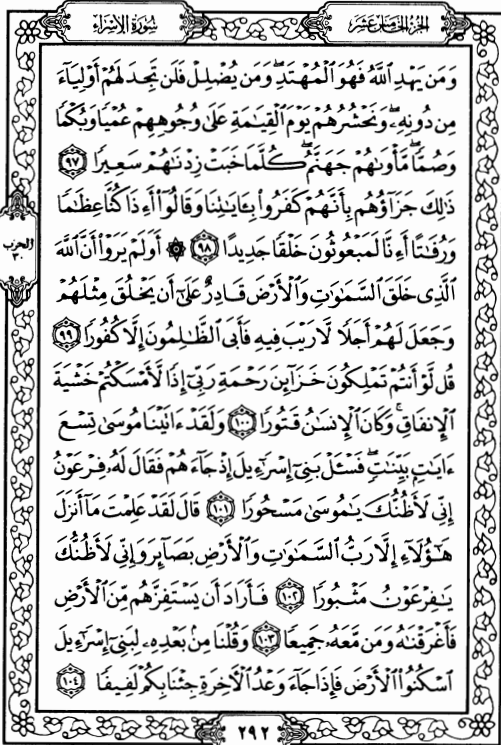 الجزء الخامس عشر
سورة الإسراء
وَمَن يَهْدِ ٱللَّهُ فَهُوَ ٱلْمُهْتَدِ ۖ وَمَن يُضْلِلْ فَلَن تَجِدَ لَهُمْ أَوْلِيَآءَ
مِن دُونِهِۦ ۖ وَنَحْشُرُهُمْ يَوْمَ ٱلْقِيَـٰمَةِ عَلَىٰ وُجُوهِهِمْ عُمْيًا وَبُكْمًا
وَصُمًّا ۖ مَّأْوَىٰهُمْ جَهَنَّمُ ۖ كُلَّمَا خَبَتْ زِدْنَـٰهُمْ سَعِيرًا ٩٧
ذَٰلِكَ جَزَآؤُهُم بِأَنَّهُمْ كَفَرُوا۟ بِـَٔايَـٰتِنَا وَقَالُوٓا۟ أَءِذَا كُنَّا عِظَـٰمًا
وَرُفَـٰتًا أَءِنَّا لَمَبْعُوثُونَ خَلْقًا جَدِيدًا ٩٨ ۞ أَوَلَمْ يَرَوْا۟ أَنَّ ٱللَّهَ
ٱلَّذِى خَلَقَ ٱلسَّمَـٰوَٰتِ وَٱلْأَرْضَ قَادِرٌ عَلَىٰٓ أَن يَخْلُقَ مِثْلَهُمْ
وَجَعَلَ لَهُمْ أَجَلًا لَّا رَيْبَ فِيهِ فَأَبَى ٱلظَّـٰلِمُونَ إِلَّا كُفُورًا ٩٩
قُل لَّوْ أَنتُمْ تَمْلِكُونَ خَزَآئِنَ رَحْمَةِ رَبِّىٓ إِذًا لَّأَمْسَكْتُمْ خَشْيَةَ
ٱلْإِنفَاقِ ۚ وَكَانَ ٱلْإِنسَـٰنُ قَتُورًا ١٠٠ وَلَقَدْ ءَاتَيْنَا مُوسَىٰ تِسْعَ
ءَايَـٰتٍۭ بَيِّنَـٰتٍ ۖ فَسْـَٔلْ بَنِىٓ إِسْرَٰٓءِيلَ إِذْ جَآءَهُمْ فَقَالَ لَهُۥ فِرْعَوْنُ
إِنِّى لَأَظُنُّكَ يَـٰمُوسَىٰ مَسْحُورًا ١٠١ قَالَ لَقَدْ عَلِمْتَ مَآ أَنزَلَ
هَـٰٓؤُلَآءِ إِلَّا رَبُّ ٱلسَّمَـٰوَٰتِ وَٱلْأَرْضِ بَصَآئِرَ وَإِنِّى لَأَظُنُّكَ
يَـٰفِرْعَوْنُ مَثْبُورًا ١٠٢ فَأَرَادَ أَن يَسْتَفِزَّهُم مِّنَ ٱلْأَرْضِ
فَأَغْرَقْنَـٰهُ وَمَن مَّعَهُۥ جَمِيعًا ١٠٣ وَقُلْنَا مِنۢ بَعْدِهِۦ لِبَنِىٓ إِسْرَٰٓءِيلَ
ٱسْكُنُوا۟ ٱلْأَرْضَ فَإِذَا جَآءَ وَعْدُ ٱلْـَٔاخِرَةِ جِئْنَا بِكُمْ لَفِيفًا ١٠٤
الحزب
٣٠
٢٩٢